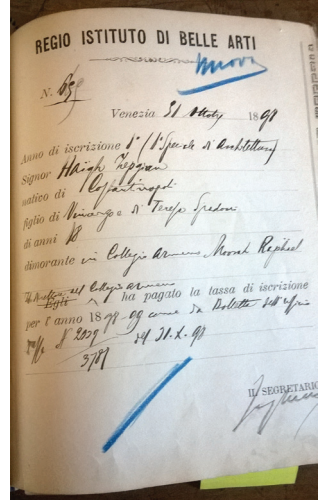 REGIO ISTITUTO DI BELLE ARTI
nuovo
N.
Venezia 31 Ottobre 1898
Anno di iscrizione 1° (1° Speciale d'Architettura)
Signor Haigh
natico di Costantinopoli
figlio di Vincenzo e di Teresa
di anni 18
dimorante in Collegio Armeno Moorat Raphael
del Collegio Armeno
Egli ha pagato la tassa di iscrizione
per l'anno 1898-99 come da Bolletta dell'
N° 2029 del 31.X.98
3781
IL SEGRETARIO